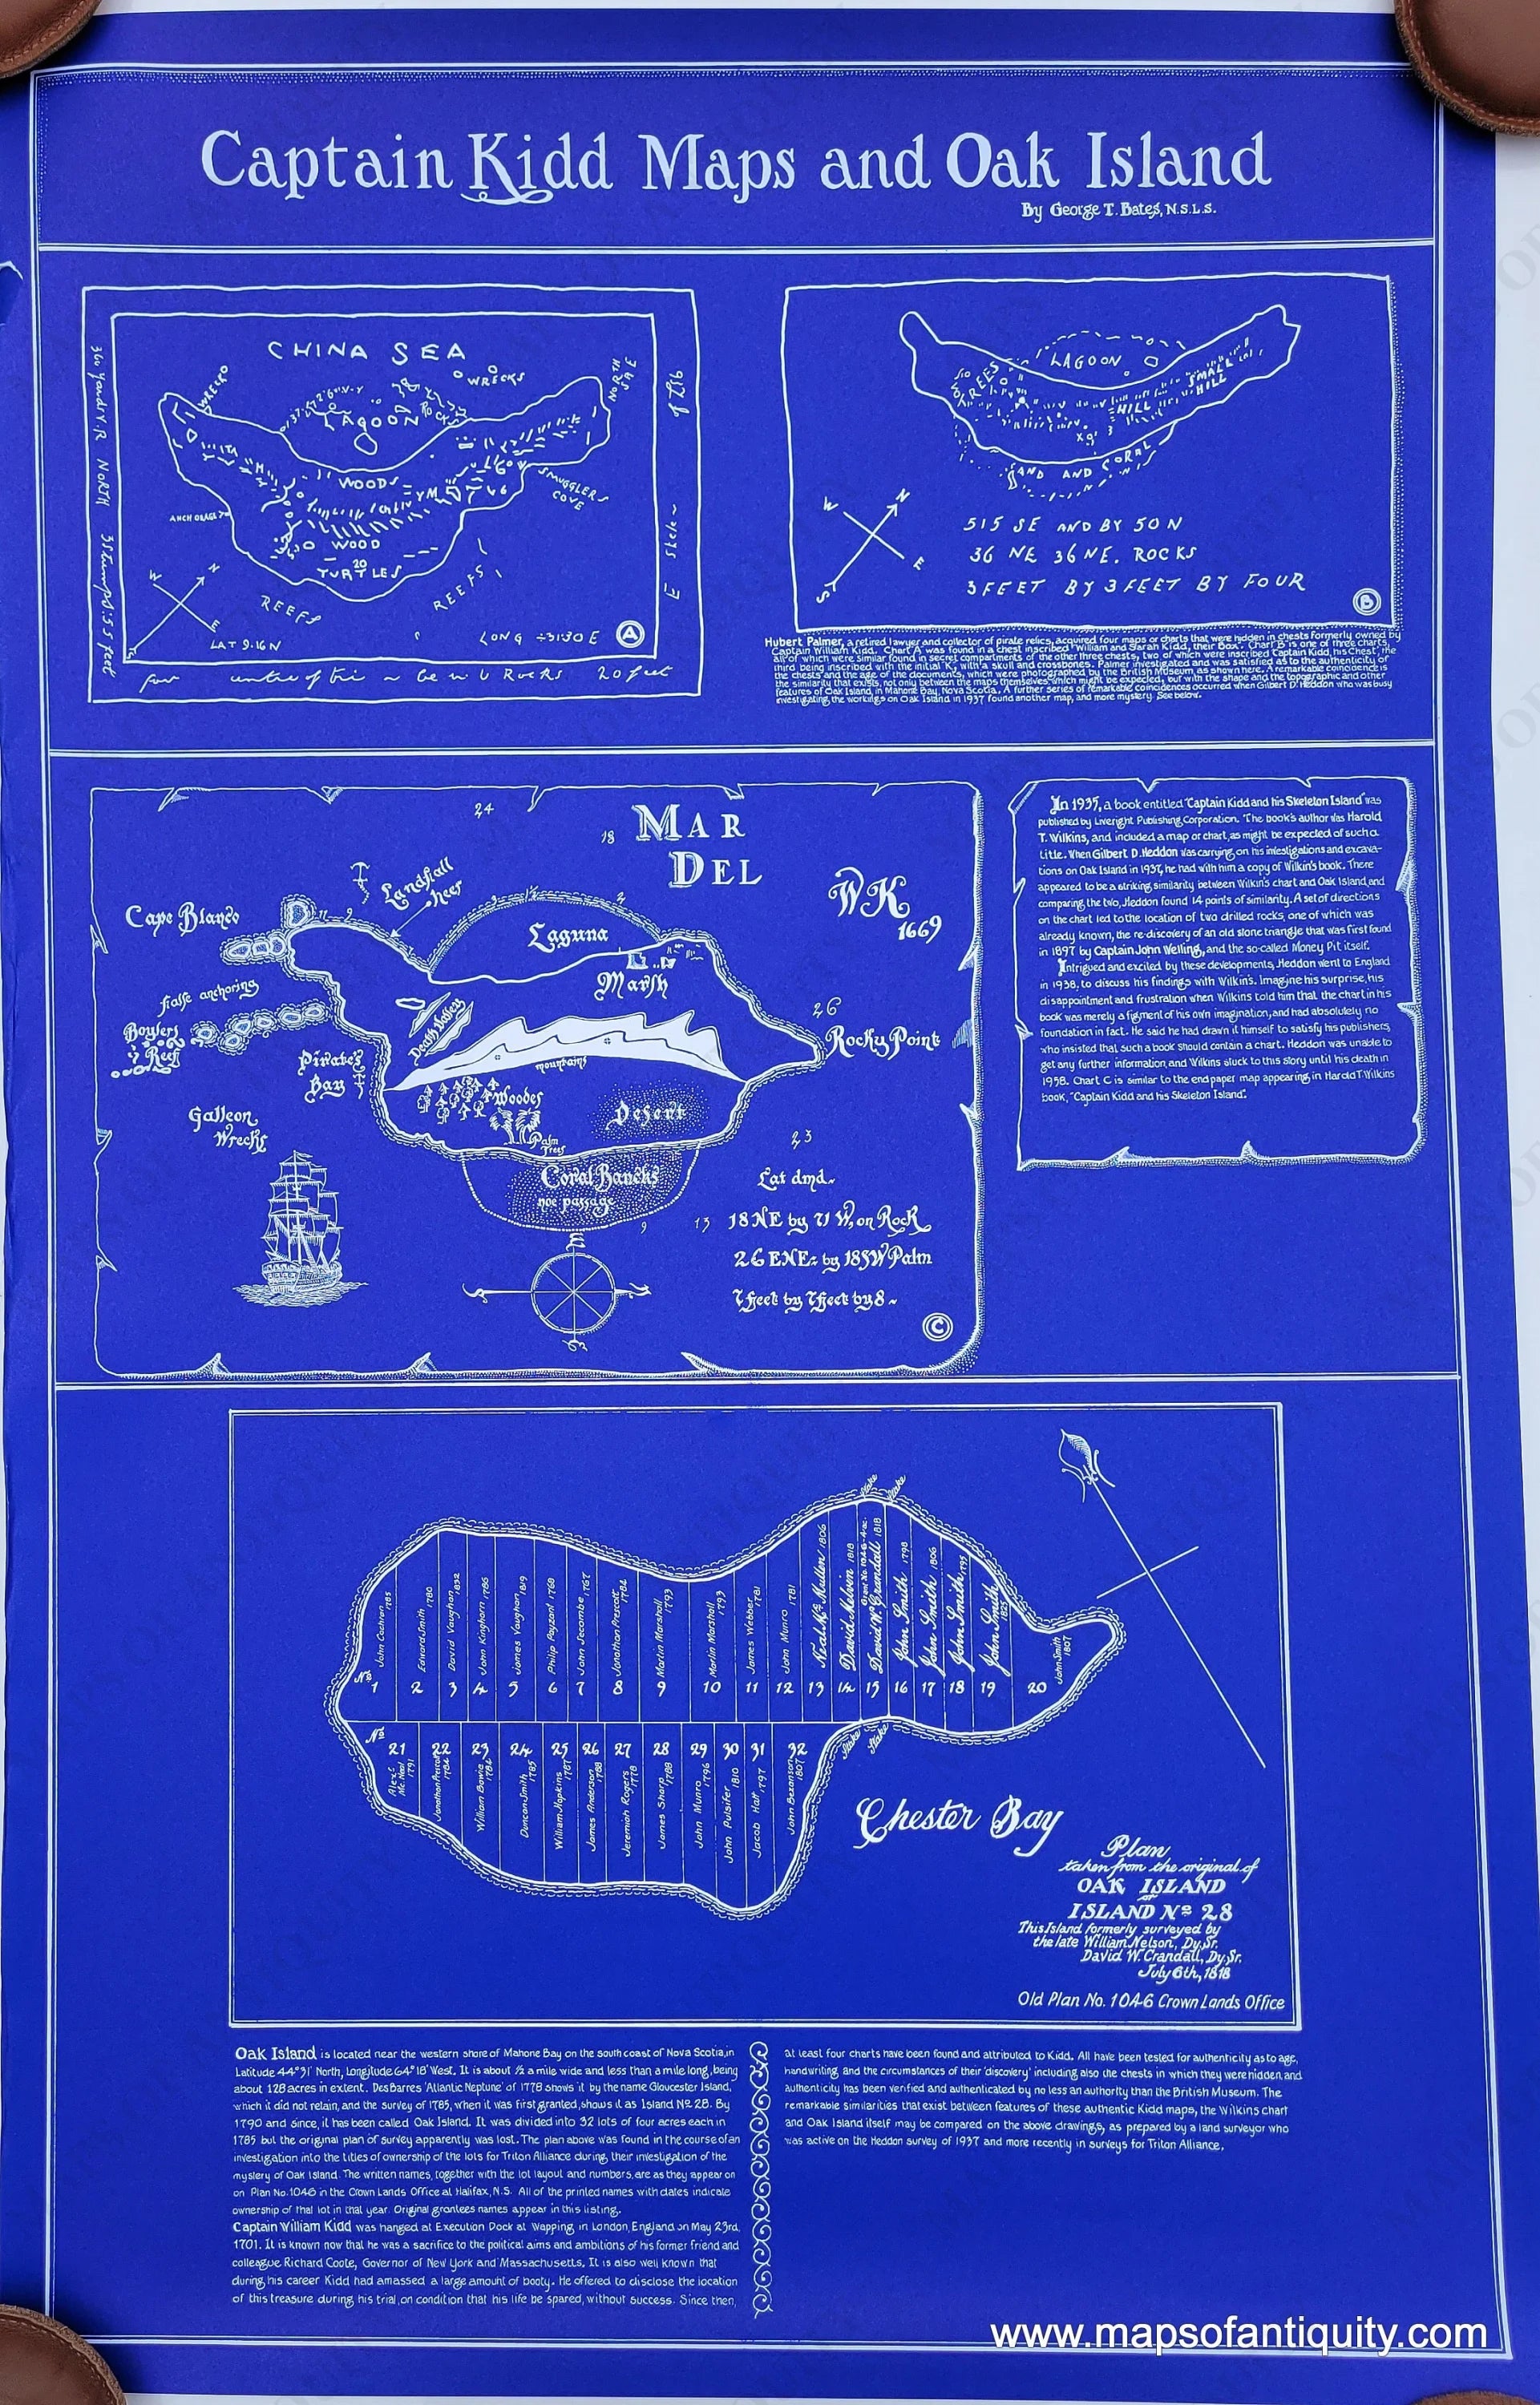 Captain Kidd Maps and Oak Island
By George T. Bates, N.S.L.S.
CHINA SEA
WRECKS
WRECKS
NORTH
LAGOON
ROCKS
WOODS
SMUGGLERS
COVE
ANCHORAGE
WOOD
20
TURTLES
REEFS
REEFS
W
N
E
LAT 9.16 N
LONG ÷3130 E
A
360 yards V.R NORTH 3 Stumps :55 feet
E skele~
four centre of tri ~ be w U ROCKS 20 feet
LAGOON
TREES
HILL
SMALL
HILL
SAND AND CORAL
W
N
E
S
515 SE AND BY 50 N
36 NE 36 NE. ROCKS
3 FEET BY 3 FEET BY FOUR
B
Hubert Palmer, a retired lawyer and collector of pirate relics, acquired four maps or charts that were hidden in chests formerly owned by
Captain William Kidd. Chart A was found in a chest inscribed 'William and Sarah Kidd, their Box'. Chart B is one of three charts,
all of which were similar found in secret compartments of the other three chests, two of which were inscribed 'Captain Kidd, his Chest', the
third being inscribed with the initial K, with a skull and crossbones. Palmer investigated and was satisfied as to the authenticity of
the chests and the age of the documents, which were photographed by the British Museum as shown here. A remarkable coincidence is
the similarity that exists, not only between the maps themselves which might be expected, but with the shape and the topographic and other
features of Oak Island, in Mahone Bay, Nova Scotia. A further series of remarkable coincidences occurred when Gilbert D. Heddon who was busy
investigating the workings on Oak Island in 1937 found another map, and more mystery. See below.
24
18
MAR
DEL
WK
1669
Landfall
heer
Cape Blanco
Laguna
Marsh
false anchoring
Death Valley
26
Rocky Point
Boylers
Reef
Pirates
Bay
mountains
Woodes
Desert
Palm
Trees
Galleon
Wrecks
Coral Bancks
noe passage
9
23
Lat dmd~
13
18 NE by 71 W, on Rock
26 ENE: by 185W Palm
7 feet by 7 feet by 8~
C
In 1935, a book entitled "Captain Kidd and his Skeleton Island" was
published by Liveright Publishing Corporation. The book's author was Harold
T. Wilkins, and included a map or chart, as might be expected of such a
title. When Gilbert D. Heddon was carrying on his investigations and excava-
tions on Oak Island in 1937, he had with him a copy of Wilkin's book. There
appeared to be a striking similarity between Wilkin's chart and Oak Island, and
comparing the two, Heddon found 14 points of similarity. A set of directions
on the chart led to the location of two drilled rocks, one of which was
already known, the re-discovery of an old stone triangle that was first found
in 1897 by Captain John Welling, and the so-called Money Pit itself.
Intrigued and excited by these developments, Heddon went to England
in 1938, to discuss his findings with Wilkin's. Imagine his surprise, his
disappointment and frustration when Wilkins told him that the chart in his
book was merely a figment of his own imagination, and had absolutely no
foundation in fact. He said he had drawn it himself to satisfy his publishers,
who insisted that such a book should contain a chart. Heddon was unable to
get any further information, and Wilkins stuck to this story until his death in
1958. Chart C is similar to the end paper map appearing in Harold T Wilkins
book, "Captain Kidd and his Skeleton Island".
Stake
Stake
No.
1 John Cochran 1785
2 Edward Smith 1780
3 David Vaughan 1832
4 John Kinghorn 1786
5 James Vaughan 1819
6 Philip Payzant 1768
7 John Secombe 1767
8 Jonathan Prescott 1784
9 Martin Marshall 1793
10 Martin Marshall 1793
11 James Webber 1781
12 John Munro 1781
13 Neal Mc Mullen 1806
14 David Melvin 1818
15 David W. Crandall 1818
Grant No. 1046-4 ac.
16 John Smith 1798
17 John Smith 1806
18 John Smith 1795
19 John Smith 1825
20 John Smith 1807
No.
21 Alex'r Mc. Neal 1791
22 Jonathan Prescott 1784
23 William Bowie 1784
24 Duncan Smith 1785
25 William Hopkins 1787
26 James Anderson 1788
27 Jeremiah Rogers 1778
28 James Sharp 1788
29 John Munro 1796
30 John Pulsifer 1810
31 Jacob Hatt 1797
32 John Bezanson 1807
Stake
Stake
Chester Bay
Plan
taken from the original of
OAK ISLAND
or
ISLAND No 28
This Island formerly surveyed by
the late William Nelson, Dy. Sr.
David W. Crandall, Dy. Sr.
July 6th, 1818
Old Plan No. 1046 Crown Lands Office
Oak Island is located near the western shore of Mahone Bay on the south coast of Nova Scotia, in
Latitude 44° 31' North, Longitude 64° 18' West. It is about ½ a mile wide and less than a mile long, being
about 128 acres in extent. DesBarres 'Atlantic Neptune' of 1778 shows it by the name Gloucester Island,
which it did not retain, and the survey of 1785, when it was first granted, shows it as Island No 28. By
1790 and since, it has been called Oak Island. It was divided into 32 lots of four acres each in
1785 but the original plan of survey apparently was lost. The plan above was found in the course of an
investigation into the titles of ownership of the lots for Triton Alliance during their investigation of the
mystery of Oak Island. The written names, together with the lot layout and numbers, are as they appear on
on Plan No. 1046 in the Crown Lands Office at Halifax, N.S. All of the printed names with dates indicate
ownership of that lot in that year. Original grantees names appear in this listing.
Captain William Kidd was hanged at Execution Dock at Wapping in London, England on May 23rd,
1701. It is known now that he was a sacrifice to the political aims and ambitions of his former friend and
colleague Richard Coote, Governor of New York and Massachusetts. It is also well known that
during his career Kidd had amassed a large amount of booty. He offered to disclose the location
of this treasure during his trial, on condition that his life be spared, without success. Since then,
at least four charts have been found and attributed to Kidd. All have been tested for authenticity as to age,
handwriting and the circumstances of their 'discovery' including also the chests in which they were hidden and
authenticity has been verified and authenticated by no less an authority than the British Museum. The
remarkable similarities that exist between features of these authentic Kidd maps, the Wilkins chart
and Oak Island itself may be compared on the above drawings, as prepared by a land surveyor who
was active on the Heddon survey of 1937 and more recently in surveys for Triton Alliance.
www.mapsofantiquity.com